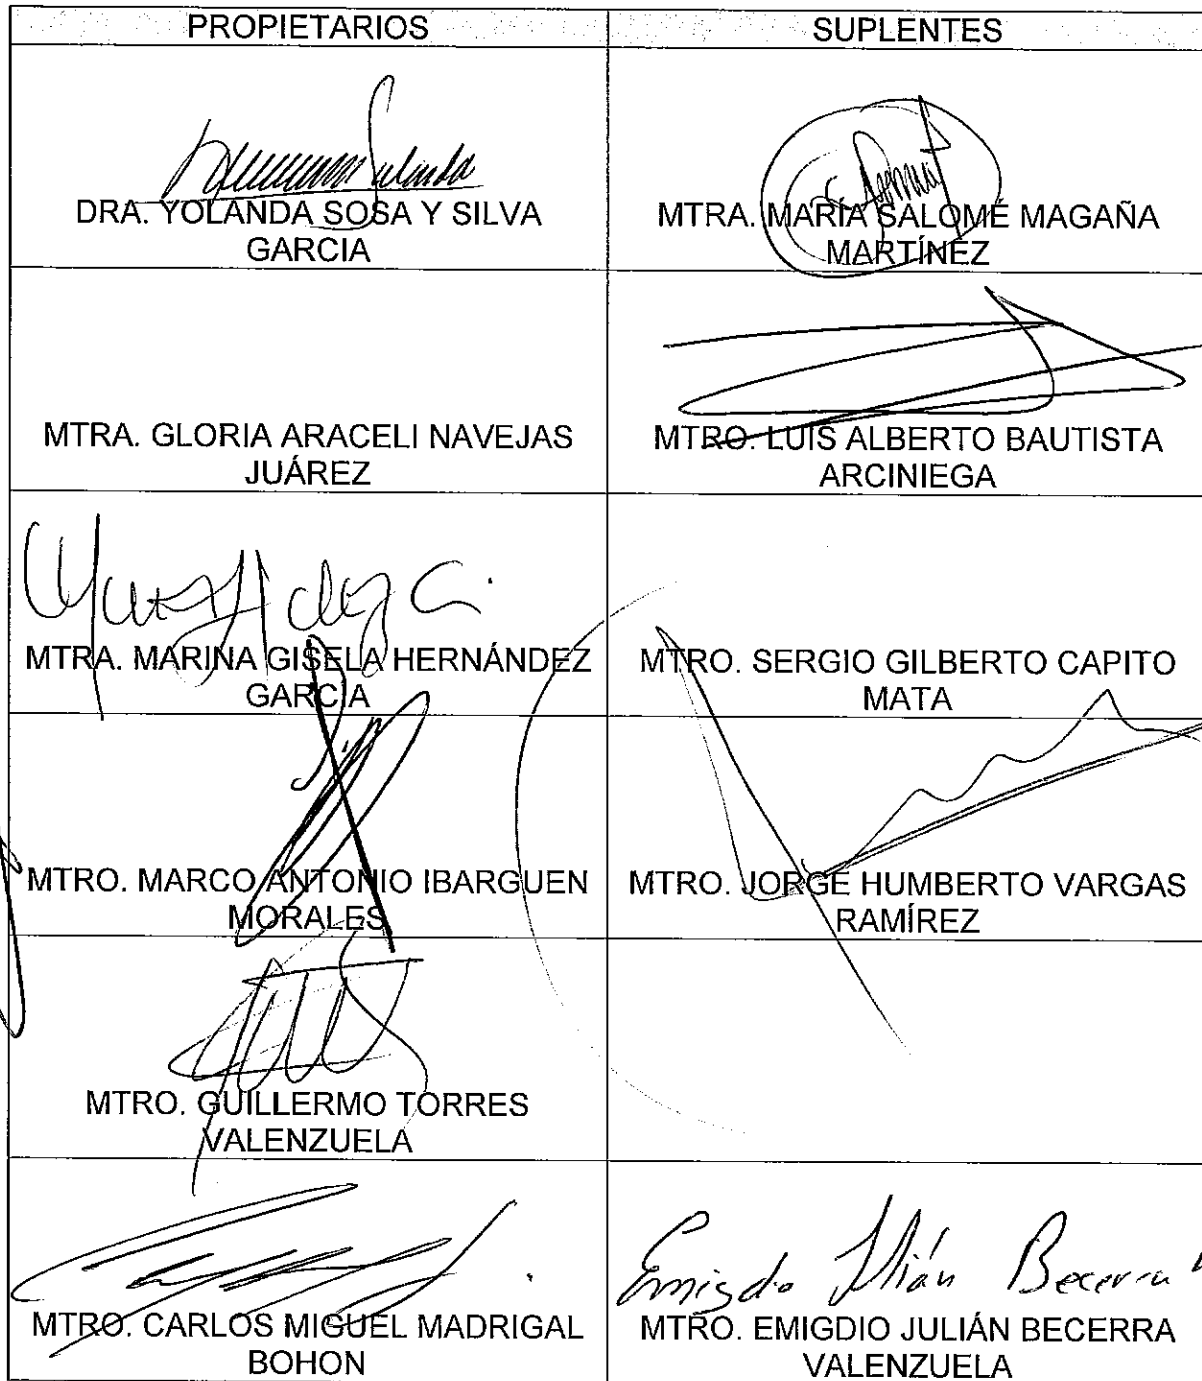 PROPIETARIOS
SUPLENTES
DRA. YOLANDA SOSA Y SILVA
GARCIA
MTRA. MARÍA SALOMÉ MAGAÑA
MARTÍNEZ
MTRA. GLORIA ARACELI NAVEJAS
JUÁREZ
MTRO. LUIS ALBERTO BAUTISTA
ARCINIEGA
MTRA. MARINA GISELA HERNÁNDEZ
GARCÍA
MTRO. SERGIO GILBERTO CAPITO
MATA
MTRO. MARCO ANTONIO IBARGUEN
MORALES
MTRO. JORGE HUMBERTO VARGAS
RAMÍREZ
MTRO. GUILLERMO TORRES
VALENZUELA
MTRO. CARLOS MIGUEL MADRIGAL
BOHON
Emigdio Julián Becerra
MTRO. EMIGDIO JULIÁN BECERRA
VALENZUELA